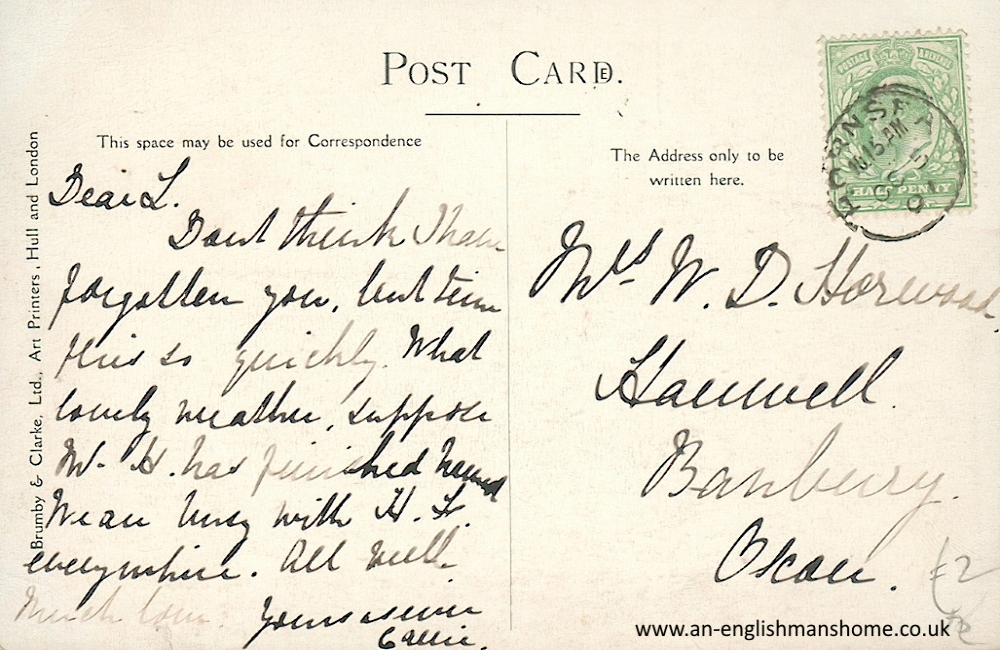 POST CARD.
This space may be used for Correspondence
The Address only to be
written here.
Brumby & Clarke, Ltd., Art Printers, Hull and London
POSTAGE REVENUE
HALF PENNY
HORNSEA
Dear L.
Dont think I have
forgotten you, but time
flies so quickly. What
lovely weather, suppose
Mr. H. has finished
We are busy with H.
everywhere. All well.
Much love. Yours as ever
Mrs. W. D. Horwood
Hanwell.
Banbury.
Oxon.
£2
www.an-englishmanshome.co.uk